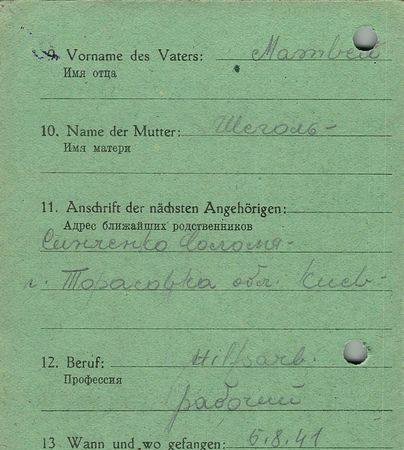 9. Vorname des Vaters: Матвей
Имя отца
10. Name der Mutter: Щеголь-
Имя матери
11. Anschrift der nächsten Angehörigen:
Адрес ближайших родственников
Синченко Соломя-
Торасовка обл. Киев-
12. Beruf: Hilfsarb.
Профессия
рабочий
13 Wann und wo gefangen: 6.8.41